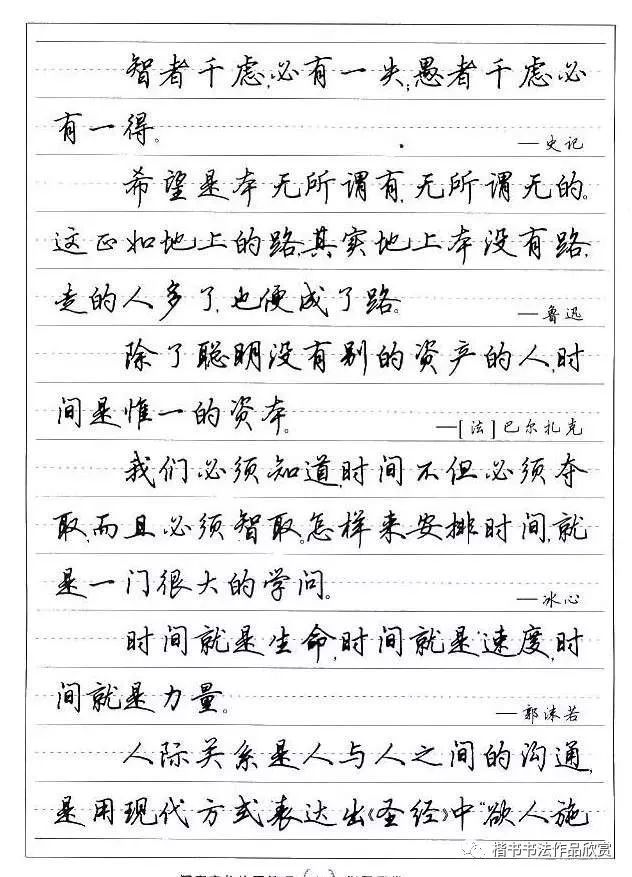 智者千虑,必有一失;愚者千虑必
有一得。
—史记
希望是本无所谓有,无所谓无的。
这正如地上的路,其实地上本没有路,
走的人多了,也便成了路。
—鲁迅
除了聪明没有别的资产的人,时
间是惟一的资本。
—[法]巴尔扎克
我们必须知道,时间不但必须夺
取,而且必须智取。怎样来安排时间,就
是一门很大的学问。
—冰心
时间就是生命,时间就是速度,时
间就是力量。
—郭沫若
人际关系是人与人之间的沟通,
是用现代方式表达出《圣经》中“欲人施
楷书书法作品欣赏